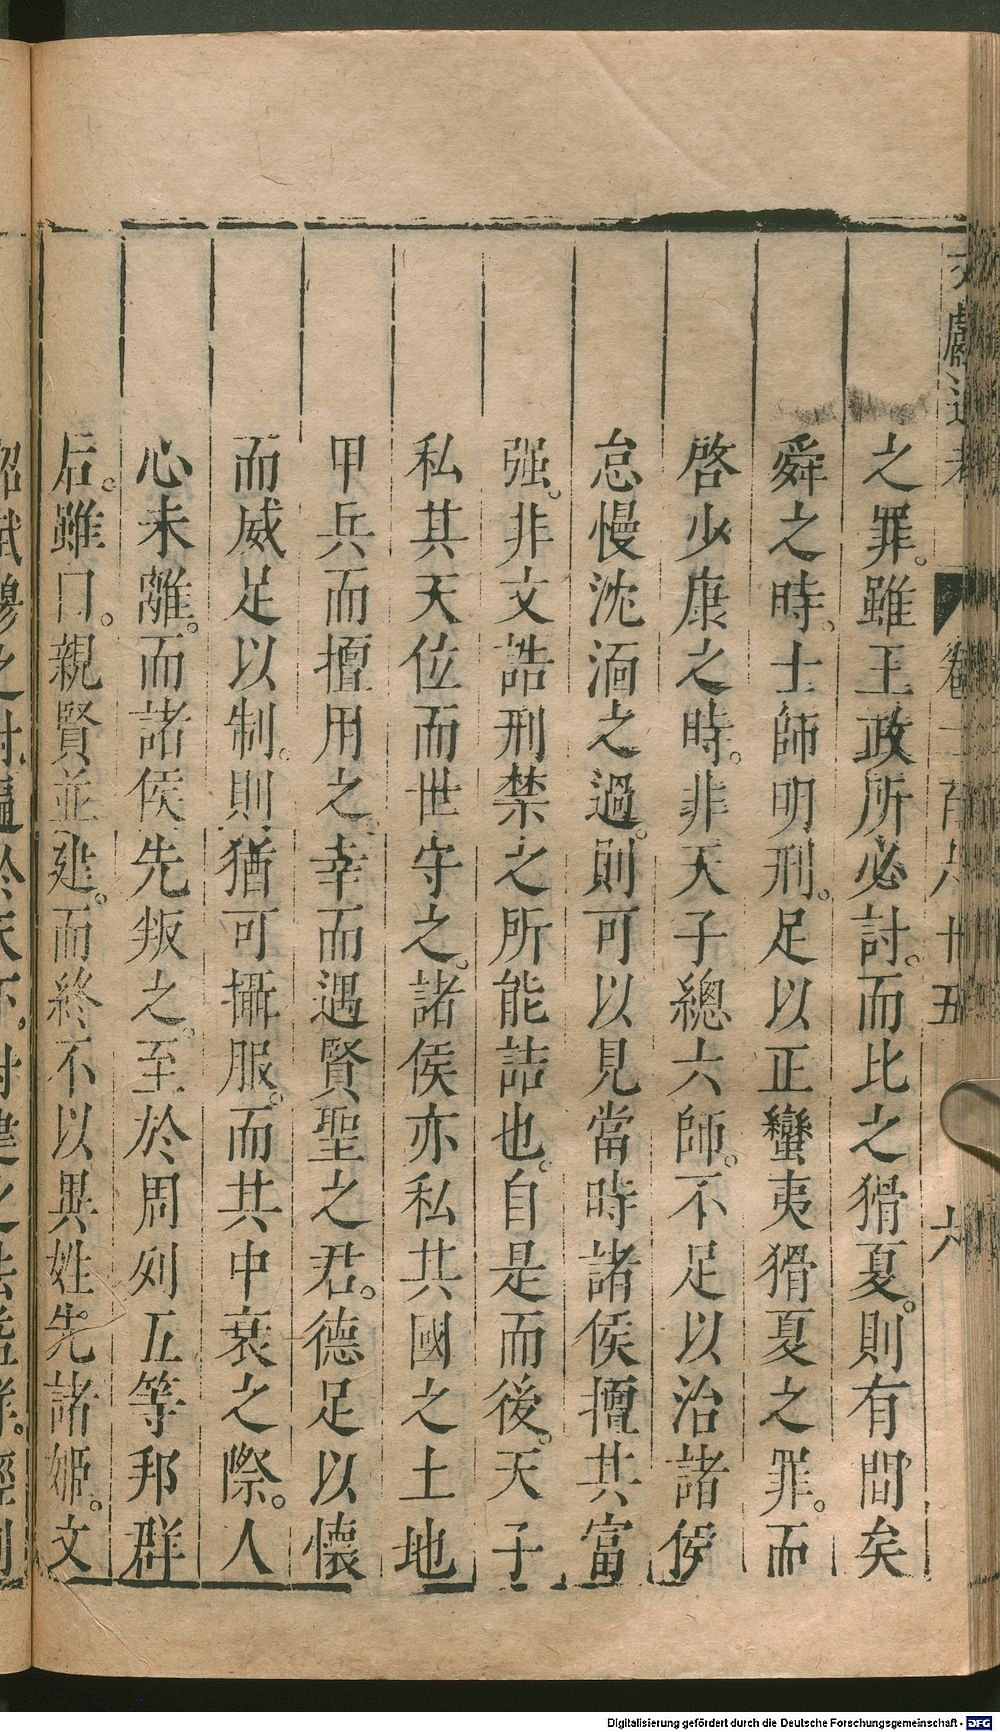 文獻通考
卷二百六十五
六
之罪。雖王政所必討。而比之猾夏。則有間矣
舜之時。士師明刑。足以正蠻夷猾夏之罪。而
啓少康之時。非天子總六師。不足以治諸侯
怠慢沈湎之過。則可以見當時諸侯擅其富
强。非文誥刑禁之所能詰也。自是而後。天子
私其天位而世守之。諸侯亦私其國之土地
甲兵而擅用之。幸而遇賢聖之君。德足以懷
而威足以制。則猶可攝服。而其中衰之際。人
心未離。而諸侯先叛之。至於周列五等邦群
后。雖曰。親賢並建。而終不以異姓先諸姬。文
昭武穆之封。徧於天下。封建之法
Digitalisierung gefördert durch die Deutsche Forschungsgemeinschaft - DFG